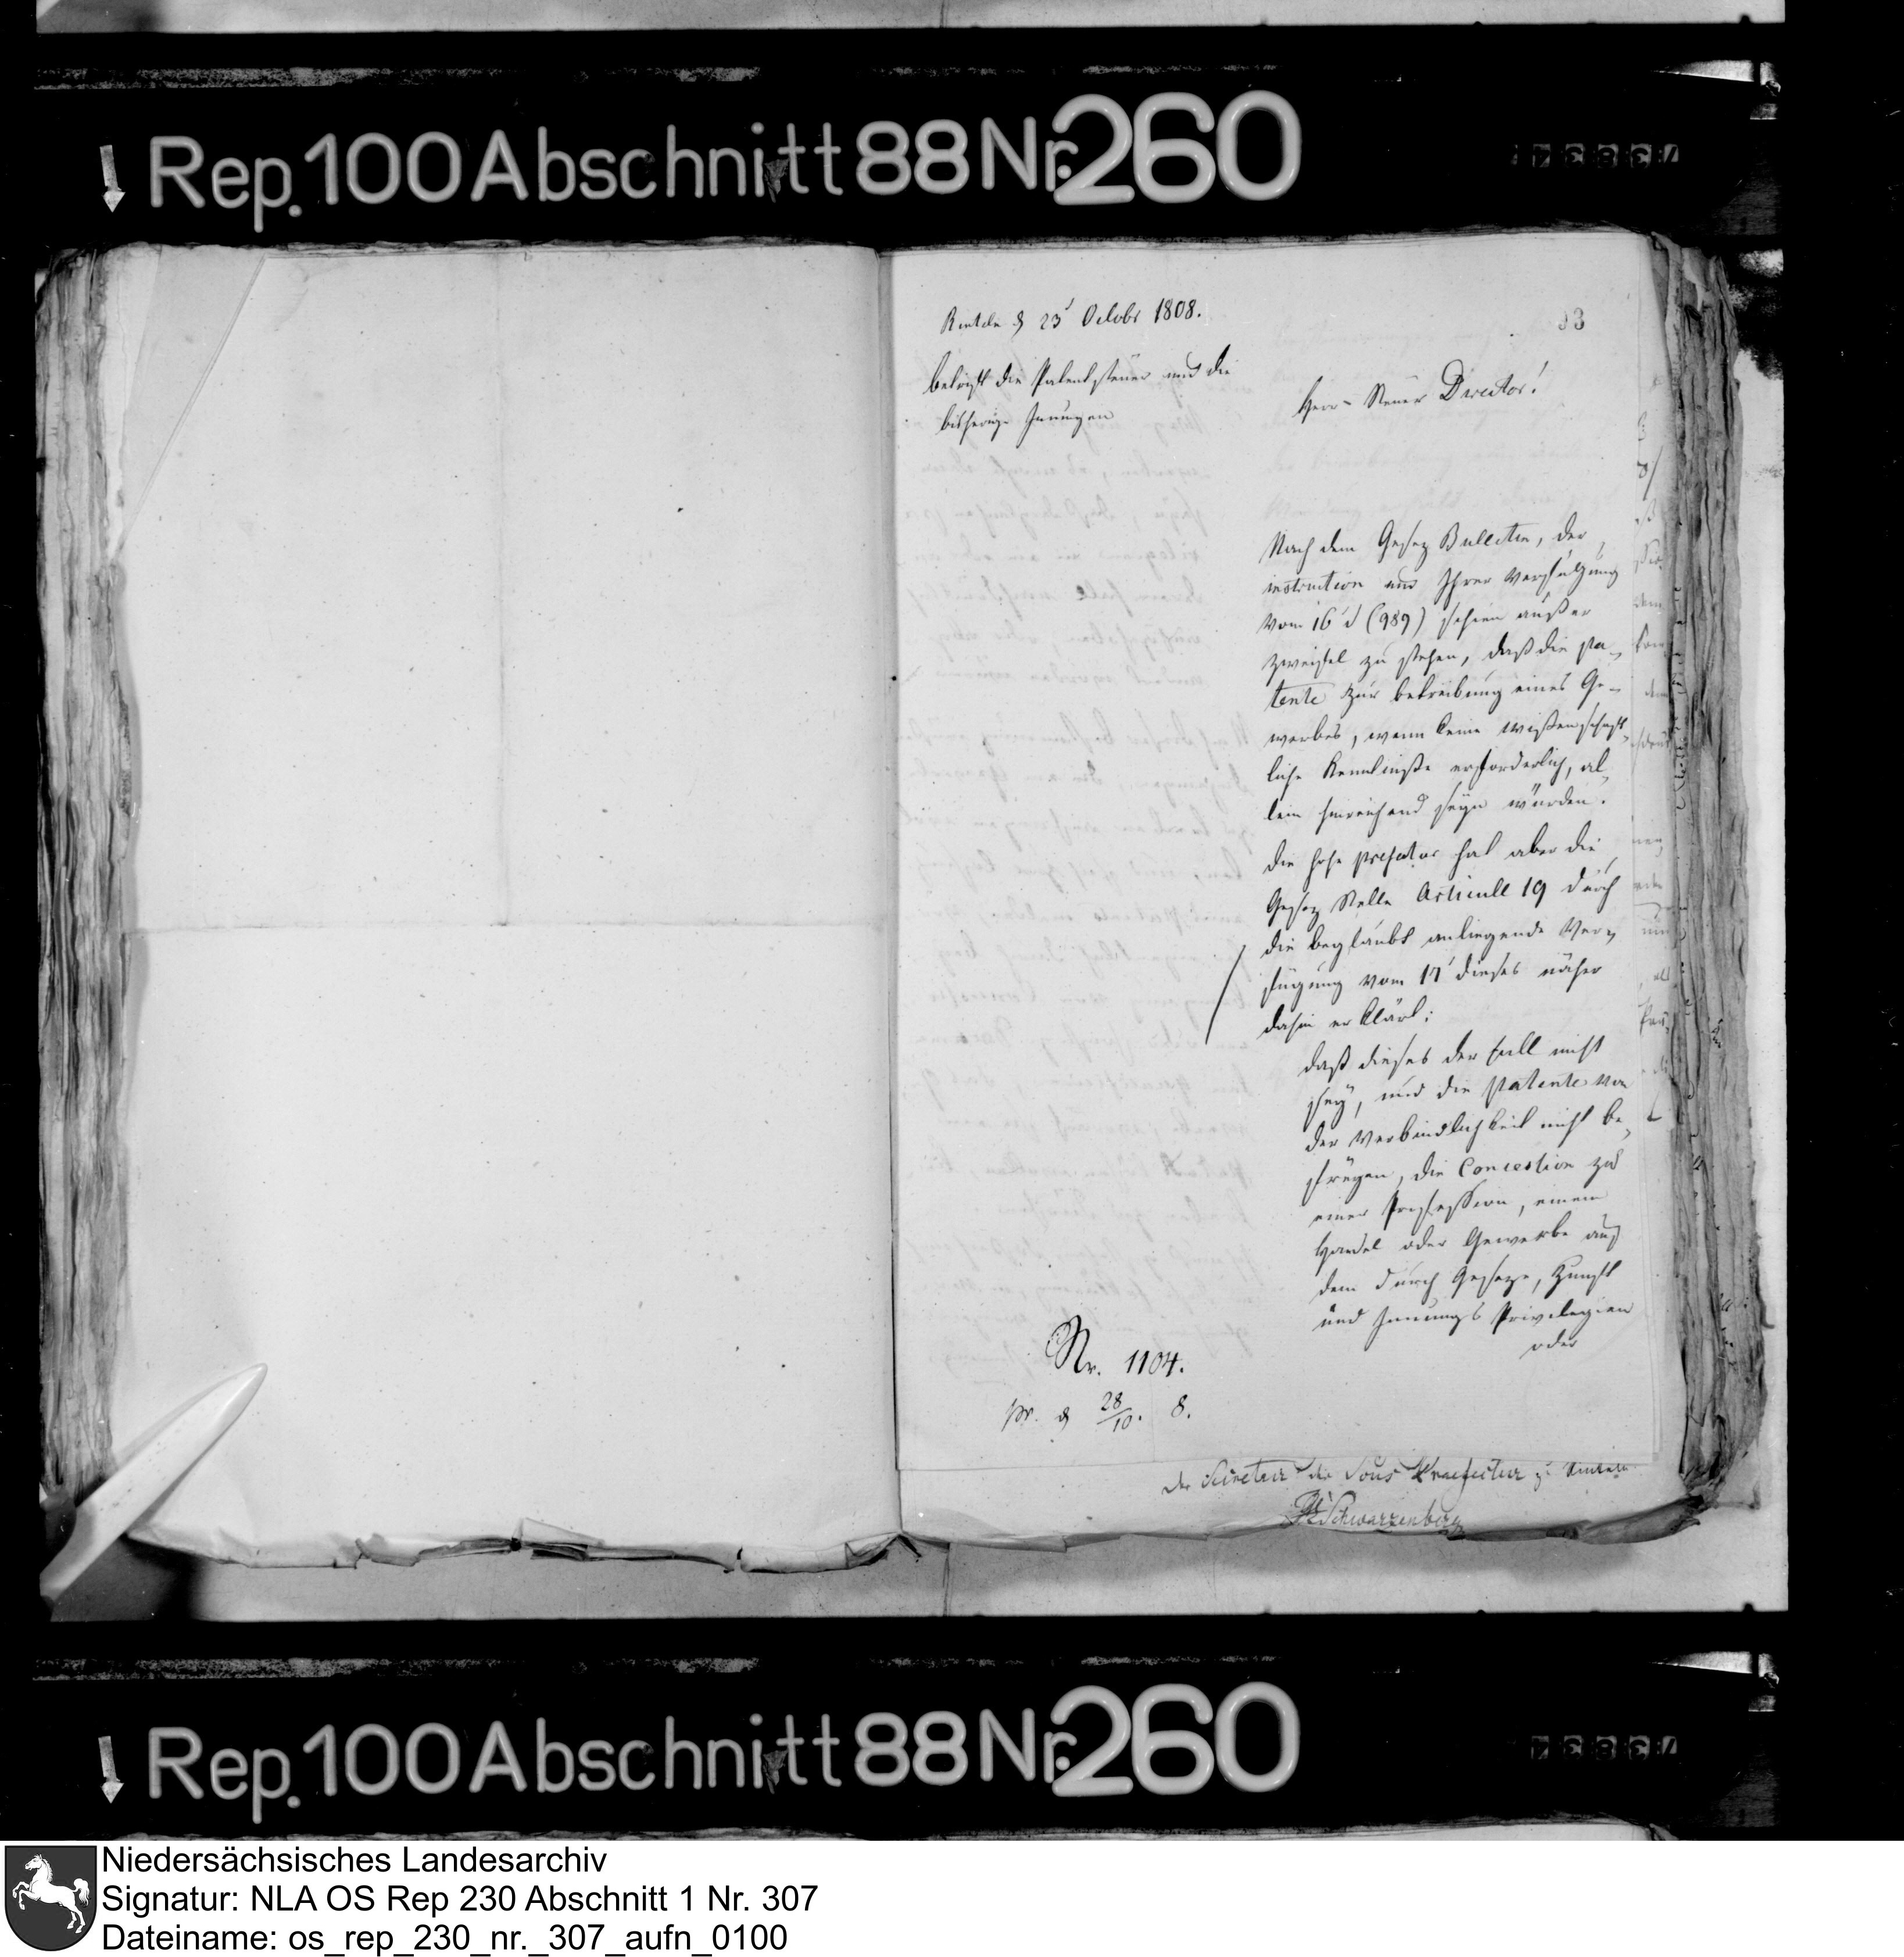 Rep. 100 Abschnitt 88 Nr. 260
Rinteln d 23' Octobr 1808.
93
betrift die Patentsteuer und die
bisherige Innungen
Herr Steuer Director!
Nach dem Gesez Bulletin, der
instruction und Ihrer Verfügung
vom 16' d (989) schien außer
Zweifel zu stehen, daß die pa-
tente zur betreibung eines Ge-
werbes, wenn keine wißenschaft-
liche Kenntniße erforderlich, al-
lein hinreichend seyn würden.
die hohe prefatur hat aber die
Gesez Stelle Articull 19 durch
die beglaubt anliegende Ver-
fügung vom 17' dieses näher
dahin erklärt:
daß dieses der fall nicht
sey, und die patente von
der Verbindlichkeit nicht be-
freyen, die Concession zu
einer Profession, einem
Handel oder Gewerbe auf
dem durch Geseze, Zunft
und Innungs Privilegien
oder
Nr. 1104.
pr. d 28/10. 8.
der Secretair der Sous Praefectur zu Rinteln
Schwarzenberg
Rep. 100 Abschnitt 88 Nr. 260
Niedersächsisches Landesarchiv
Signatur: NLA OS Rep 230 Abschnitt 1 Nr. 307
Dateiname: os_rep_230_nr._307_aufn_0100